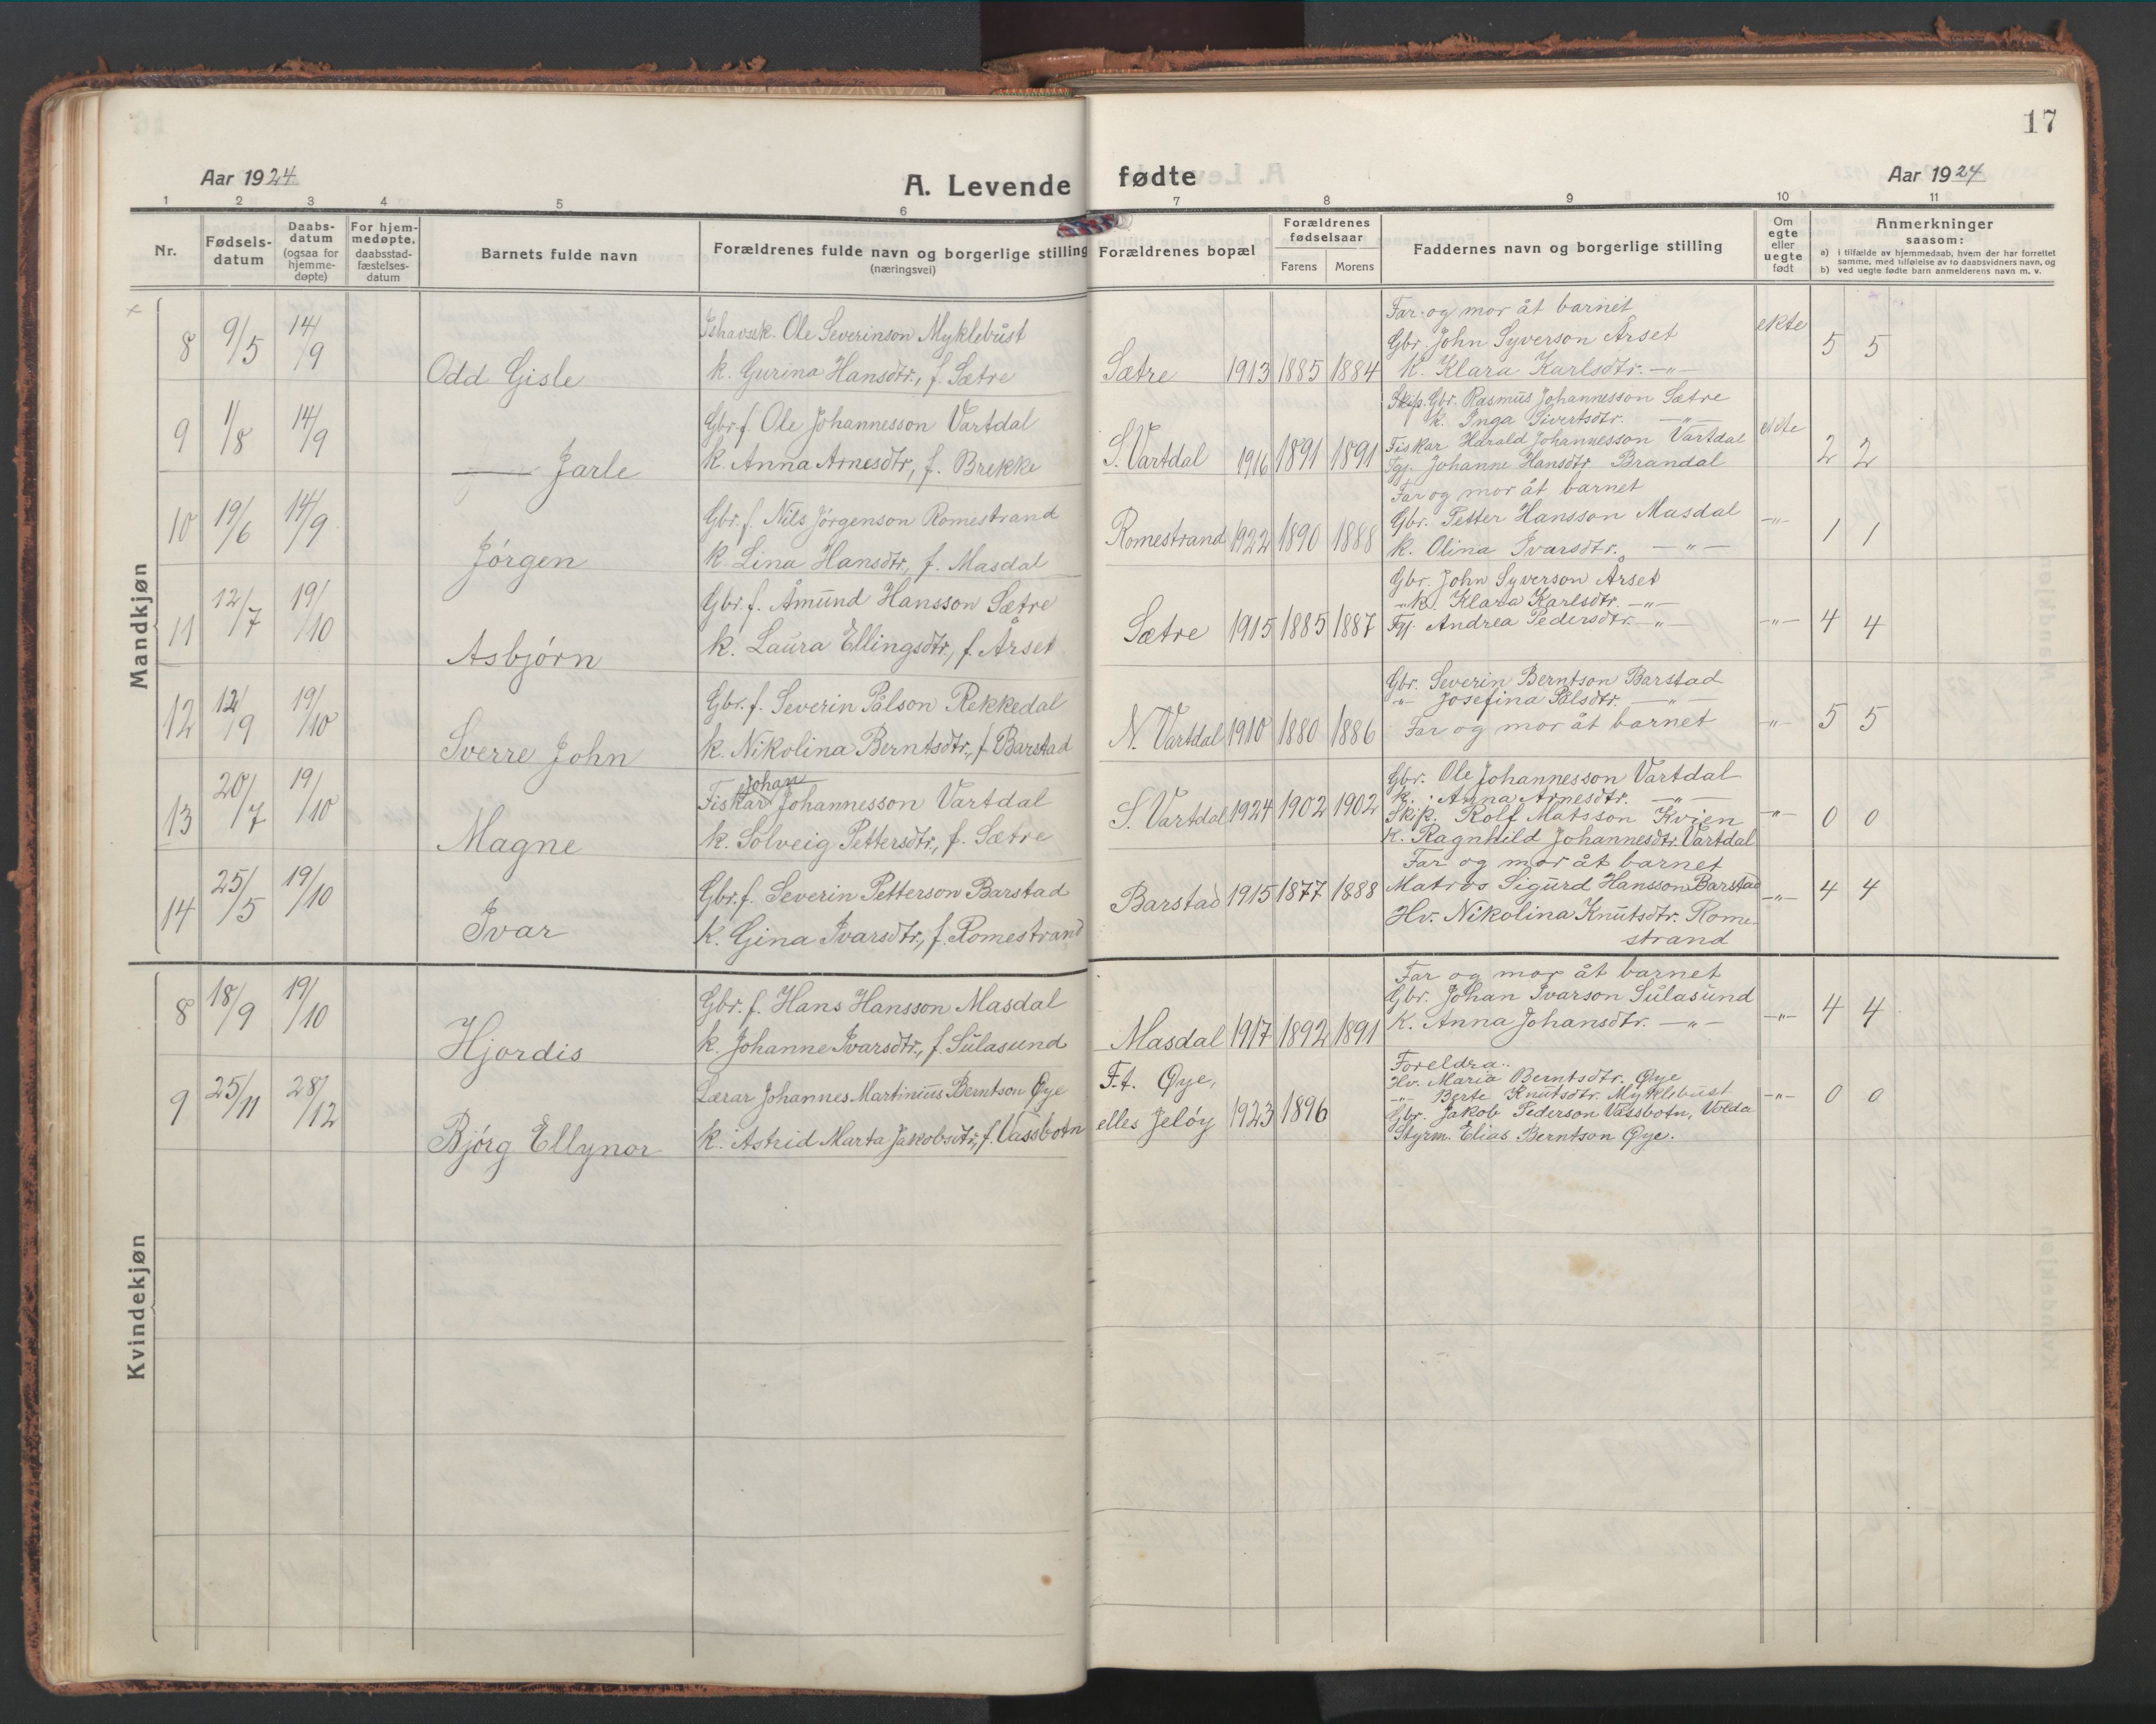 17
Aar 1924
A. Levende fødte
Aar 1924
1 2 3 4 5 6 7 8 9 10 11
Nr.
Fødsels-
datum
Daabs-
datum
(ogsaa for
hjemme-
døpte)
For hjem-
medøpte,
daabsstad-
fæstelses-
datum
Barnets fulde navn
Forældrenes fulde navn og borgerlige stilling
(næringsvei)
Forældrenes bopæl
Forældrenes
fødselsaar
Farens Morens
Faddernes navn og borgerlige stilling
Om
egte
eller
uegte
født
Anmerkninger
saasom:
a) i tilfælde av hjemmedaab, hvem der har forrettet
samme, med tilføielse av to daabsvidners navn, og
b) ved uegte fødte barn anmelderens navn m. v.
Mandkjøn
8 9/5 14/9
Odd Gisle
Ishavssk. Ole Severinson Myklebust
k. Gurina Hansdtr., f. Sætre
Sætre 1913 1885 1884
Far og mor åt barnet
Gbr. John Syverson Årset
k. Klara Karlsdtr. —"—
ekte 5 5
9 1/8 14/9
Jarle
Gbr.f. Ole Johannesson Vartdal
k. Anna Arnesdtr, f. Brekke
S. Vartdal 1916 1891 1891
Skip. Gbr. Rasmus Johannesson Sætre
k. Inga Sivertsdtr. —"—
Fiskar Harald Johannesson Vartdal
Tgj. Johanne Hansdtr. Brandal
ekte 2 2
10 19/6 14/9
Jørgen
Gbr.f. Nils Jørgenson Romestrand
k. Lina Hansdtr., f. Masdal
Romestrand 1922 1890 1888
Far og mor åt barnet
Gbr. Petter Hansson Masdal
k. Olina Ivarsdtr. —"—
—"— 1 1
11 12/7 19/10
Asbjørn
Gbr.f. Åmund Hansson Sætre
k. Laura Ellingsdtr., f. Årset
Sætre 1915 1885 1887
Gbr. John Syverson Årset
"k. Klara Karlsdtr. —"—
Tgj. Andrea Pedersdtr. —"—
—"— 4 4
12 12/9 19/10
Sverre John
Gbr.f. Severin Pålson Rekkedal
k. Nikolina Berntsdtr., f. Barstad
N. Vartdal 1910 1880 1886
Gbr. Severin Berntson Barstad
" Josefina Pålsdtr. —"—
Far og mor åt barnet
—"— 5 5
13 20/7 19/10
Magne
Johan
Fiskar Johannesson Vartdal
k. Solveig Pettersdtr., f. Sætre
S. Vartdal 1924 1902 1902
Gbr. Ole Johannesson Vartdal
k. Anna Arnesdtr. —"—
Skip. Rolf Matsson Kvien
k. Ragnhild Johannesdtr. Vartdal
—"— 0 0
14 25/5 19/10
Ivar
Gbr.f. Severin Petterson Barstad
k. Gina Ivarsdtr., f. Romestrand
Barstad 1915 1877 1888
Far og mor åt barnet
Matros Sigurd Hansson Barstad
Hv. Nikolina Knutsdtr. Rome-
strand
—"— 4 4
Kvindekjøn
8 18/9 19/10
Hjordis
Gbr.f. Hans Hansson Masdal
k. Johanne Ivarsdtr., f. Sulasund
Masdal 1917 1892 1891
Far og mor åt barnet
Gbr. Johan Ivarson Sulasund
k. Anna Johansdtr. —"—
—"— 4 4
9 25/11 28/12
Bjørg Ellynor
Lærar Johannes Martinius Berntson Øye
k. Astrid Marta Jakobsdtr., f. Vassbotn
F.t. Øye,
elles Jeløy 1923 1896
Foreldra.
Hv. Maria Berntsdtr. Øye
—"— Berte Knutsdtr. Myklebust
Gbr. Jakob Pederson Vassbotn, Volda
Styrm. Elias Berntson Øye.
—"— 0 0